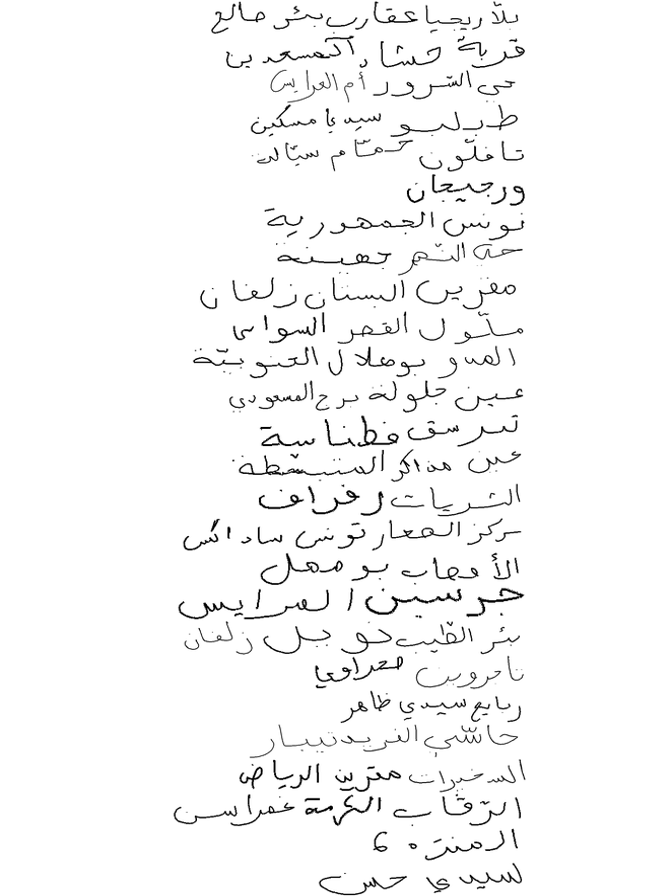 بلاريجيا عقارب بئر صالح
قرية حشاد اكمسعدين
حي السرور أم العرايس
طبلبو سيدي مسكين
تافلّون حمّام سيّالة
ورجيجان
تونس الجمهورية
حي النسيم جهينة
مقرين البستان زلفان
ملّول القصر السواسي
بوهلال الجنوبيّة
عين جلولة برج المسعودي
تبرسق فطناسة
عين مذاكر المنبسطة
الشريات رفراف
مركز العمار تونس سادالس
بومهل
جرسين العرايس
بئر الطيب دويل زلفان
تاجروين معراوي
ربايع سيدي ظاهر
حاشي الفريد نيبار
السخيرات مقرين الرياض
الرّقاب الكرمة غمراسن
المنزه 6
لسيدي حسن